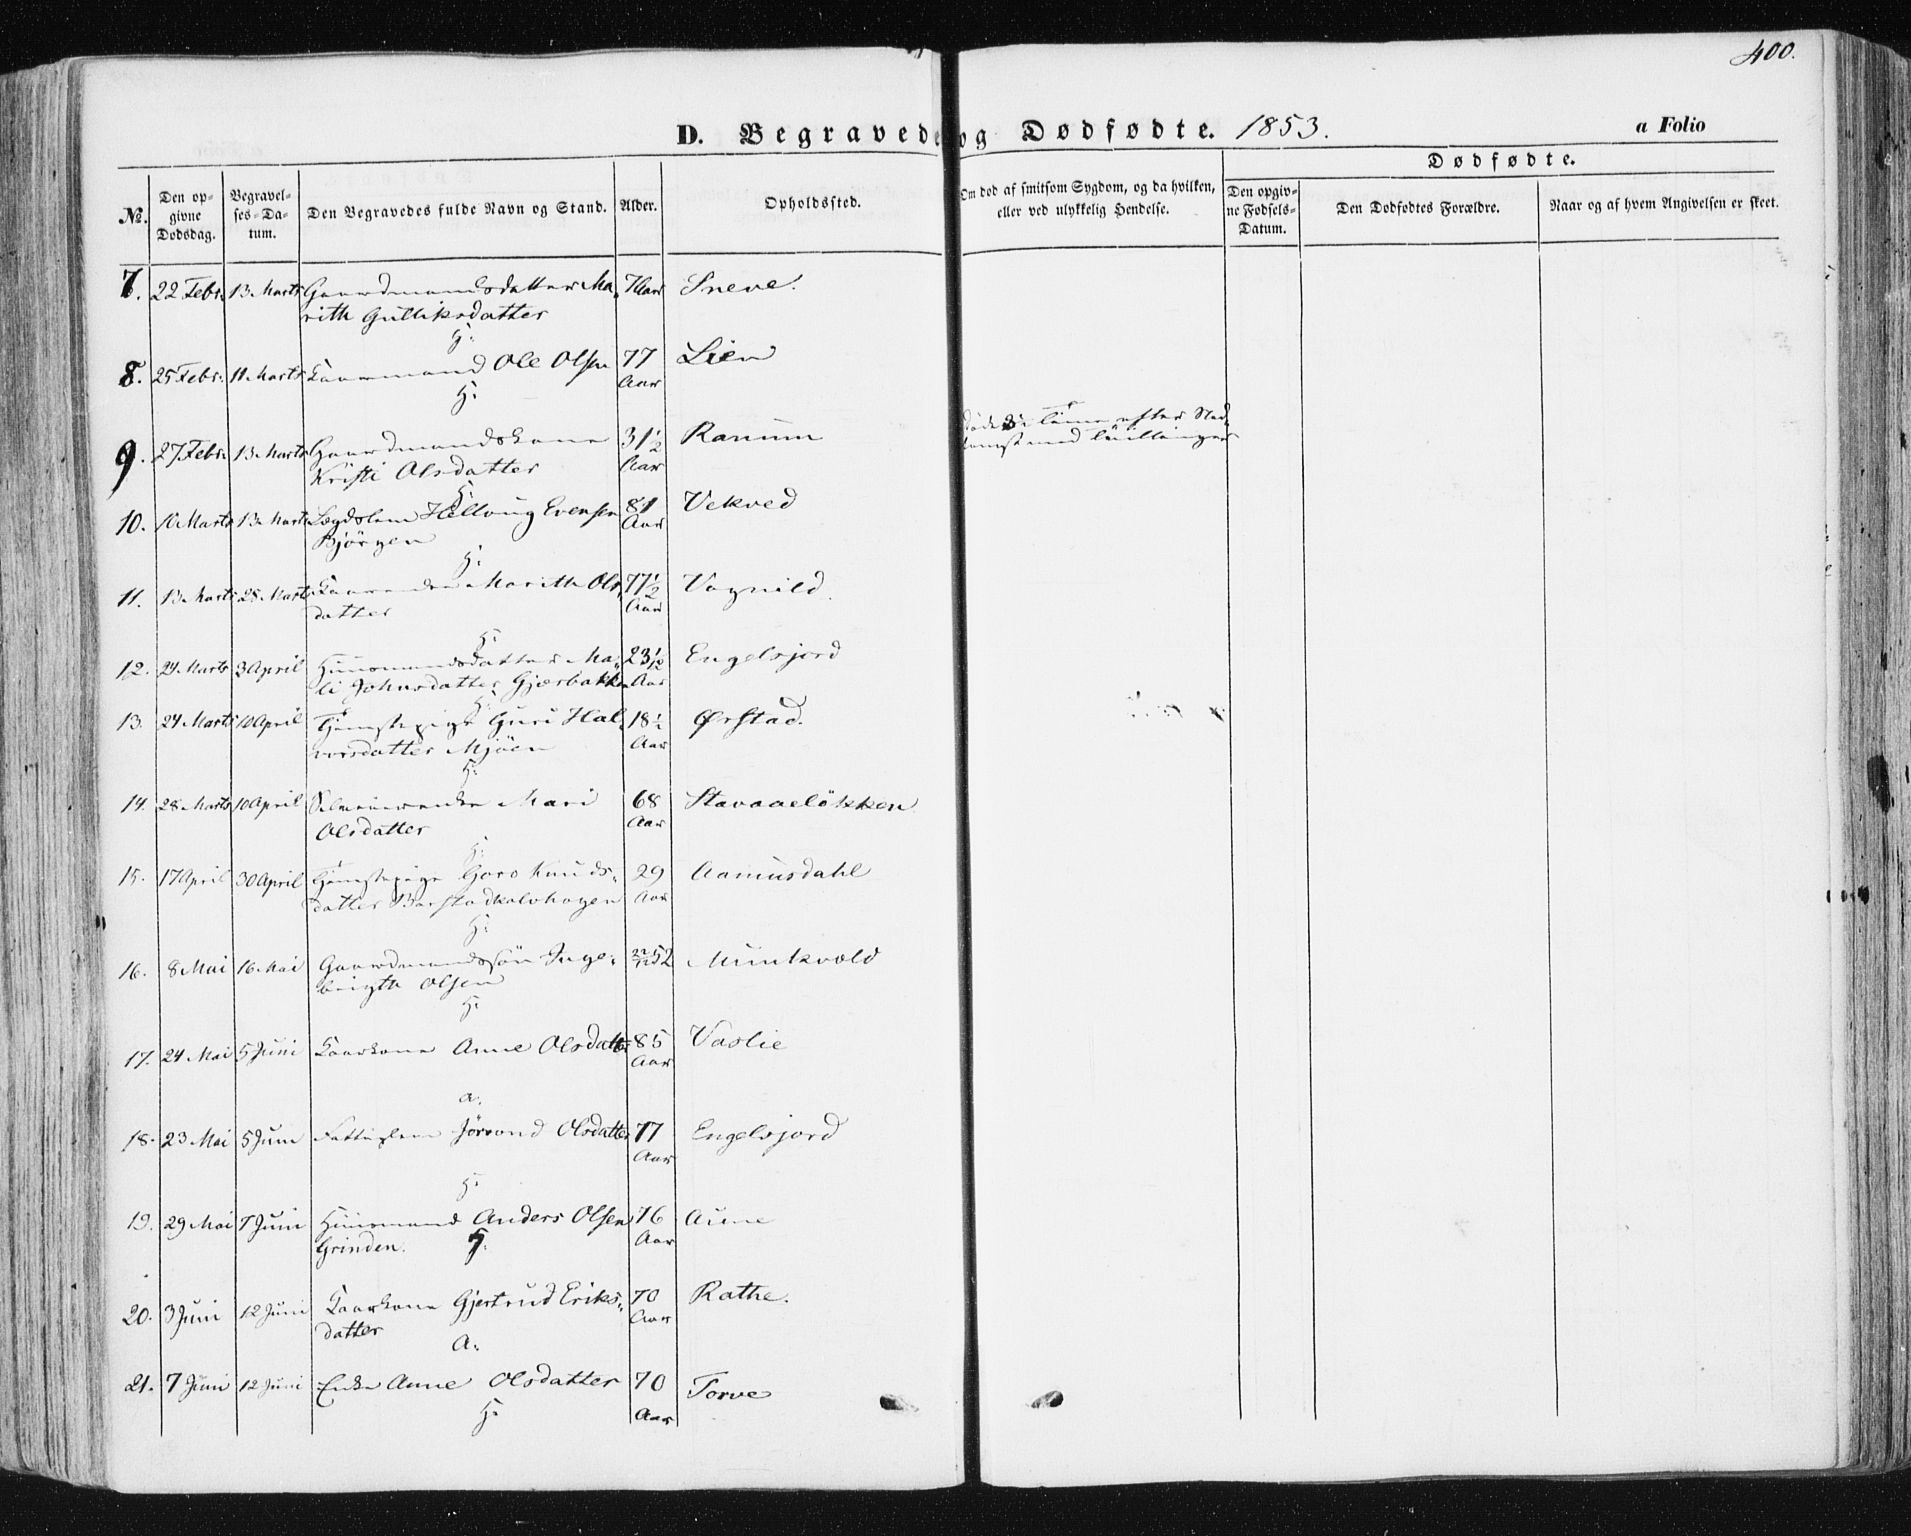 400.
D. Begravede og Dødfødte. 1853.
a Folio
No.
Den opgivne Dødsdag.
Begravelses-Datum.
Den Begravedes fulde Navn og Stand.
Alder.
Opholdssted.
Om død af smitsom Sygdom, og da hvilken, eller ved ulykkelig Hendelse.
Dødfødte.
Den opgivne Fødsels-Datum.
Den Dødfødtes Forældre.
Naar og af hvem Angivelsen er skeet.
7. 22 Febr. 13 Marts Gaardmandsdatter Ma- Sneve.
rith Gulliksdatter
H.
8. 25 Febr. 11 Marts Kaarmand Ole Olsen 77 Lien
Aar
H.
9. 27 Febr. 13 Marts Gaardmandskone 31 1/2 Ranum
Kristi Olsdatter Aar
H.
10. 10 Marts 13 Marts Lægdslem Hellvug Evensen 81 Vekved
Bjørgen Aar
H.
11. 13 Marts 28 Marts Kaarenken Marith Ols- 77 1/2 Vognild.
datter Aar
H.
12. 24 Marts 3 April Huusmandsdatter Ma- 23 1/12 Engelsjord
li Johnsdatter Gjærbakken Aar
H.
13. 24 Marts 10 April Tjenestepige Guri Hal- 18 1/2 Ørstad.
vorsdatter Mjöen Aar
H.
14. 28 Marts 10 April Mari 68 Stavaaeløkken
Olsdatter Aar
H.
15. 17 April 30 April Tjenestepige Goro Knuds- 29 Aamusdahl
datter Barstadkalvhagen Aar
H.
16. 8 Mai 16 Mai Gaardmandssön Inge- 52 Munkvold
brigth Olsen
H.
17. 24 Mai 5 Juni Kaarkone Anne Olsdatter 85 Vaslie
Aar
a.
18. 23 Mai 5 Juni Fattiglem Jörond Olsdatter 77 Engelsjord
Aar
H.
19. 29 Mai 7 Juni Huusmand Anders Olsen 76 Aune
Grinden. Aar
H.
20. 3 Juni 12 Juni Kaarkone Gjertrud Eriks- 70 Rathe.
datter Aar
A.
21. 7 Juni 12 Juni Enke Anne Olsdatter 70 Torve
Aar
H.